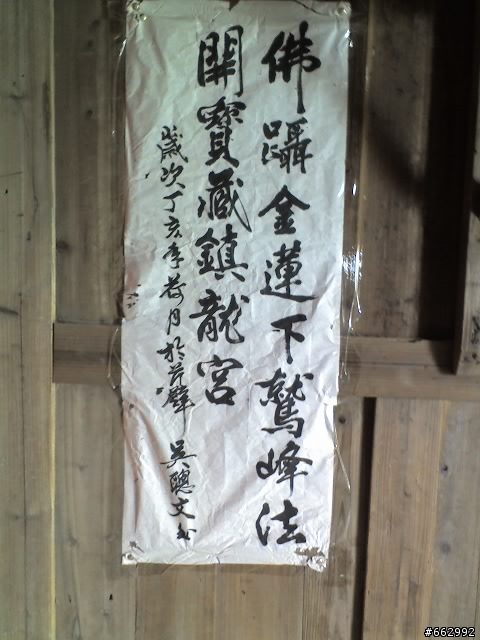 佛躡金蓮下鷲峰法
開寶藏鎮龍宮
歲次丁亥年荷月於芹壁 吳聰文書
#662992